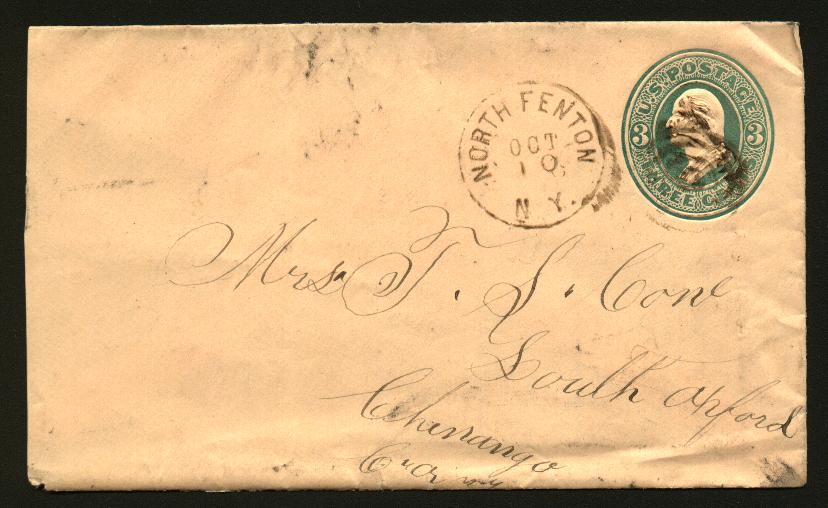 U.S. POSTAGE
3 3
THREE CENTS
NORTH FENTON
OCT
10
N. Y.
Mrs. T. S. Cone
South Oxford
Chenango
Co NY